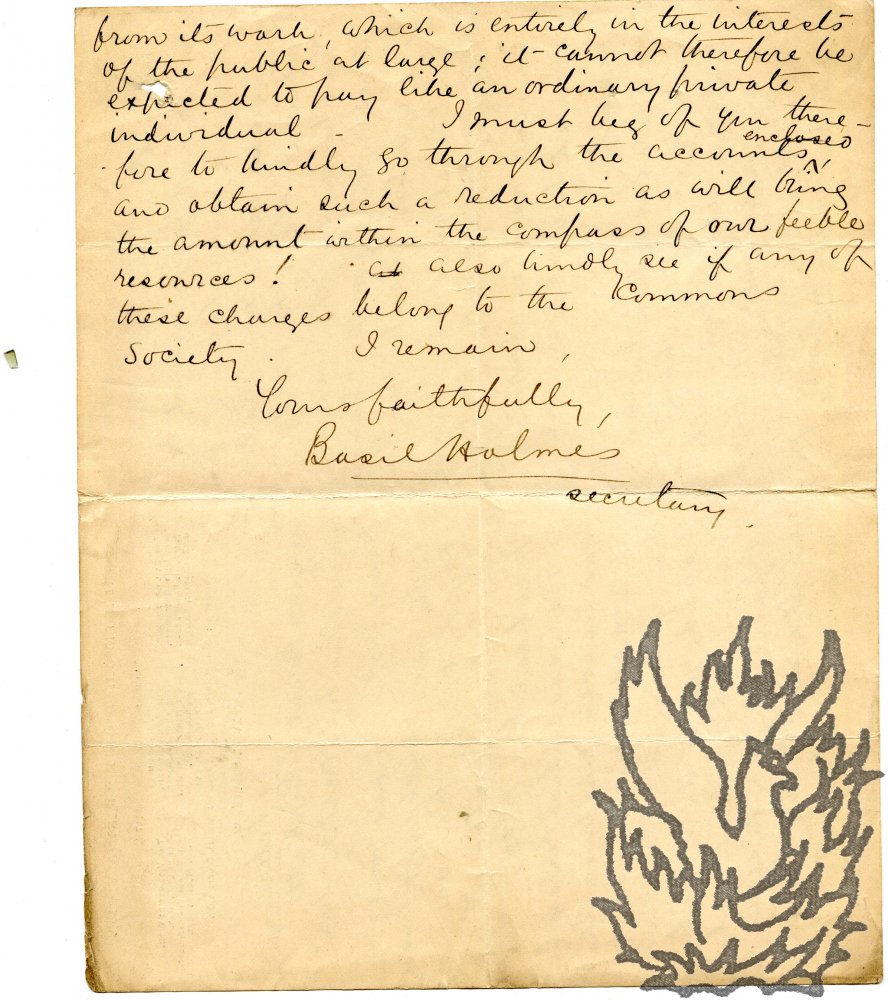 from its work, which is entirely in the interests
of the public at large; it cannot therefore be
expected to pay like an ordinary private
individual - I must beg of you there-
enclosed
fore to kindly go through the accounts,
and obtain such a reduction as will bring
the amount within the compass of our feeble
resources! also kindly see if any of
these charges belong to the Commons
Society. I remain,
Yours faithfully,
Basil Holmes
secretary.